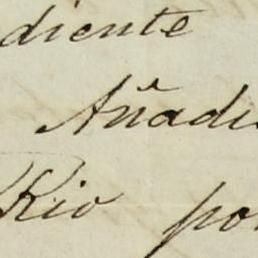 diente
Añadi
Rio por